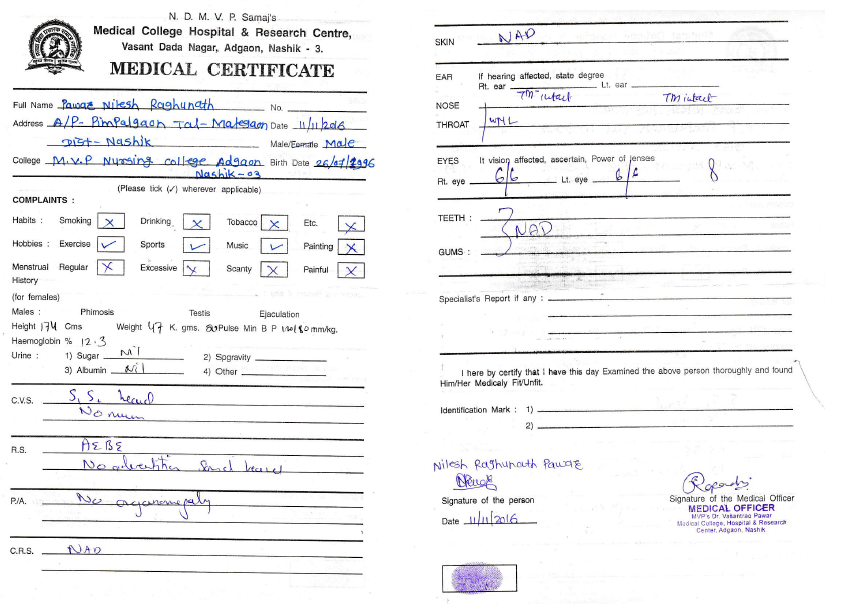 N. D. M. V. P. Samaj's
Medical College Hospital & Research Centre,
Vasant Dada Nagar, Adgaon, Nashik - 3.
MEDICAL CERTIFICATE
Full Name Pawar Nilesh Raghunath No.
Address A/P- Pimpalgaon Tal- Malegaon Date 11/11/2016
Dist- Nashik Male/Female Male
College M.V.P Nursing College Adgaon Birth Date 26/07/1996
Nashik-03
(Please tick (✓) wherever applicable)
COMPLAINTS :
Habits : Smoking X Drinking X Tobacco X Etc. X
Hobbies : Exercise ✓ Sports ✓ Music ✓ Painting X
Menstrual Regular X Excessive X Scanty X Painful X
History
(for females)
Males : Phimosis Testis Ejaculation
Height 174 Cms Weight 47 K. gms. 80 Pulse Min B P 110/80 mm/kg.
Haemoglobin % 12.3
Urine : 1) Sugar Nil 2) Spgravity
3) Albumin Nil 4) Other
C.V.S. S, S, heard
No mum
R.S. AEBE
No sound heard
P/A. No organomegaly
C.R.S. NAD
SKIN NAD
EAR If hearing affected, state degree
Rt. ear TM intact Lt. ear TM intact
NOSE
THROAT WNL
EYES It vision affected, ascertain, Power of lenses
Rt. eye 6/6 Lt. eye 6/6 8
TEETH : NAD
GUMS :
Specialist's Report if any :
I here by certify that I have this day Examined the above person thoroughly and found
Him/Her Medicaly Fit/Unfit.
Identification Mark : 1)
2)
Nilesh Raghunath Pawar
Signature of the person
Date 11/11/2016
Signature of the Medical Officer
MEDICAL OFFICER
MVP's Dr. Vasantrao Pawar
Medical College, Hospital & Research
Center, Adgaon, Nashik